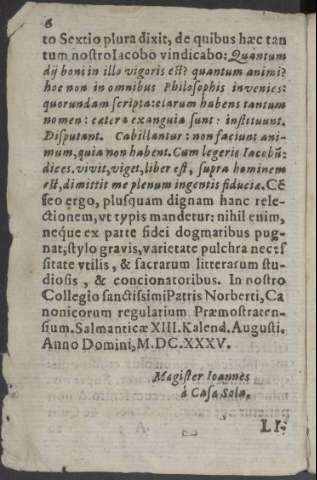 6
to Sextio plura dixit, de quibus hæc tan
tum nostro Iacobo vindicabo: Quantum
dij boni in illo vigoris est? quantum animi?
hoc non in omnibus Philosophis invenies:
quorundam scripta: clarum habens tantum
nomen: cætera exanguia sunt: instituunt.
Disputant. Cabillantur: non faciunt ani-
mum, quia non habent. Cum legeris Iacobũ:
dices. vivit, viget, liber est, supra hominem
est, dimittit me plenum ingentis fiducia. Cẽ
seo ergo, plusquam dignam hanc rele-
ctionem, vt typis mandetur: nihil enim,
neque ex parte fidei dogmatibus pug-
nat, stylo gravis, varietate pulchra necesſ
sitate vtilis, & sacrarum litterarum stu-
diosis, & concionatoribus. In nostro
Collegio sanctissimi Patris Norberti, Ca
nonicorum regularium Præmostraten-
sium. Salmanticæ XIII. Kalend. Augusti.
Anno Domini, M.DC.XXXV.
Magister Ioannes
á Casa Sola.
LI-